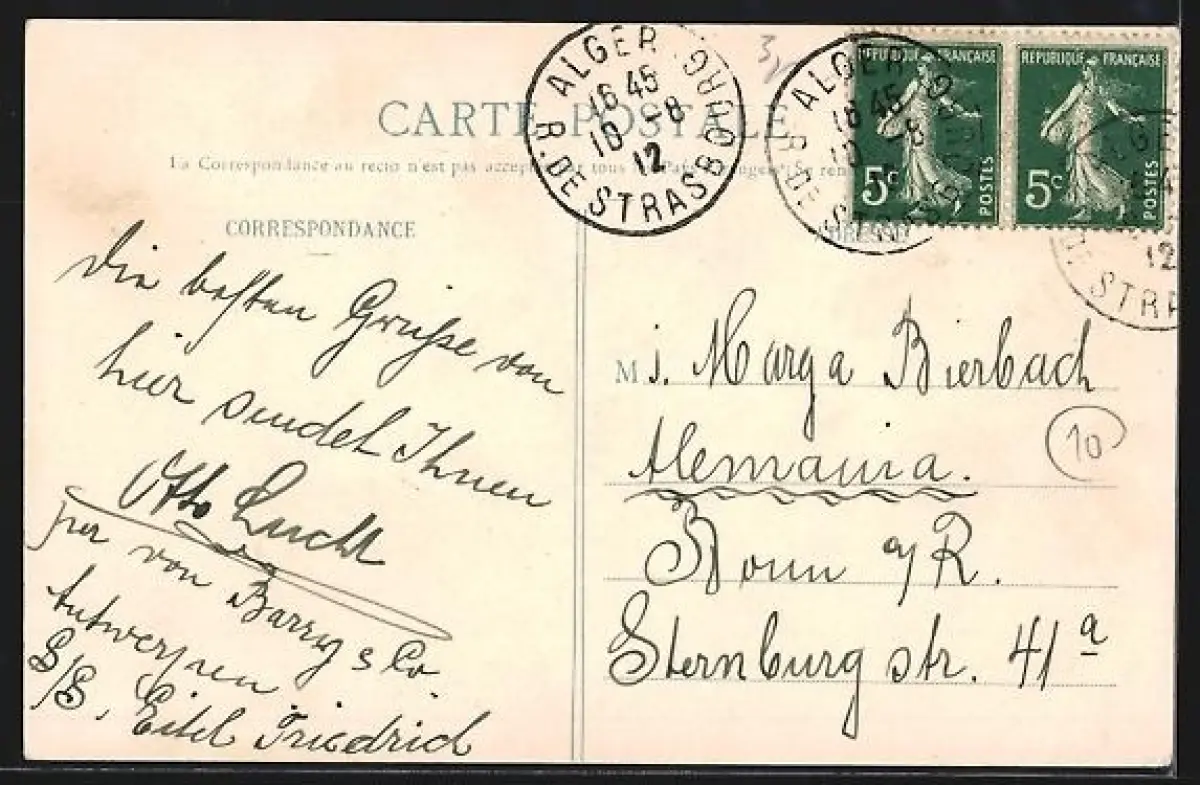 ALGER R. DE STRASBOURG
16 45
10 -8
12
3
ALGER R. DE STRASBOURG
16 45
10 -8
REPUBLIQUE FRANÇAISE
5c
POSTES
REPUBLIQUE FRANÇAISE
5c
POSTES
STRA
12
CARTE POSTALE
La Correspondance au recto n'est pas acceptée par tous les Pays étrangers (Se ren
CORRESPONDANCE
ADRESSE
Die besten Grüsse von
hier sendet Ihnen
Otto Lucht
per von Barry & Co.
Antwerpen
S/S. Eitel Friedrich
M j. Marga Bierbach
Alemania.
10
Bonn a/R.
Sternburg str. 41a